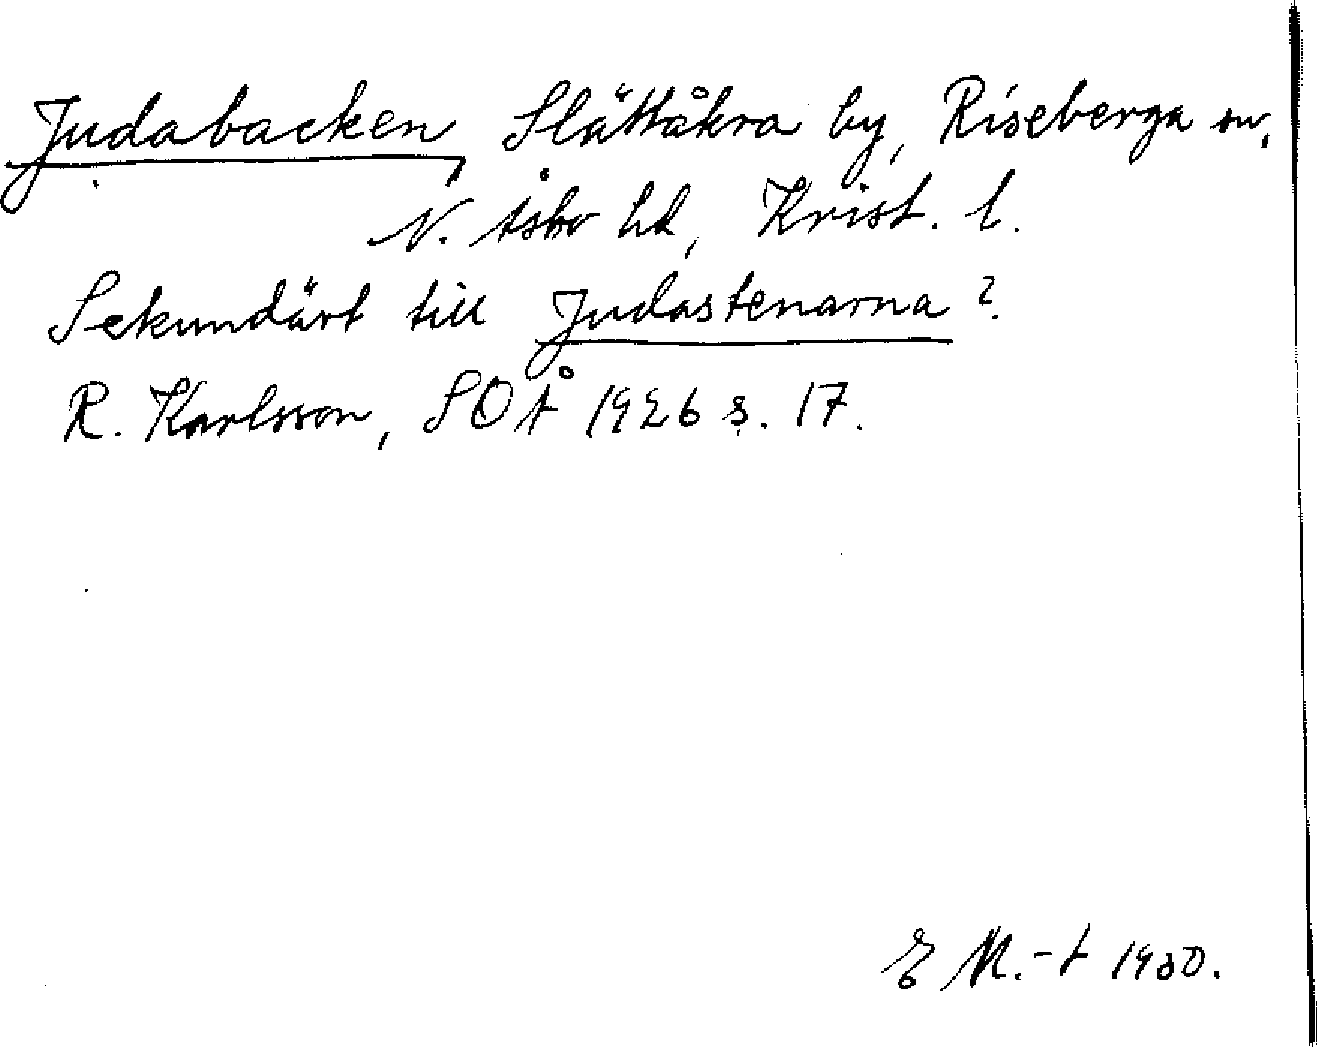 Judabacken, Slättåkra by, Riseberga sn.
N. Åsbo hd, Krist. l.
Sekundärt till Judastenarna?
R. Karlsson, SOÅ 1926 s. 17.
E M.-t 1930.